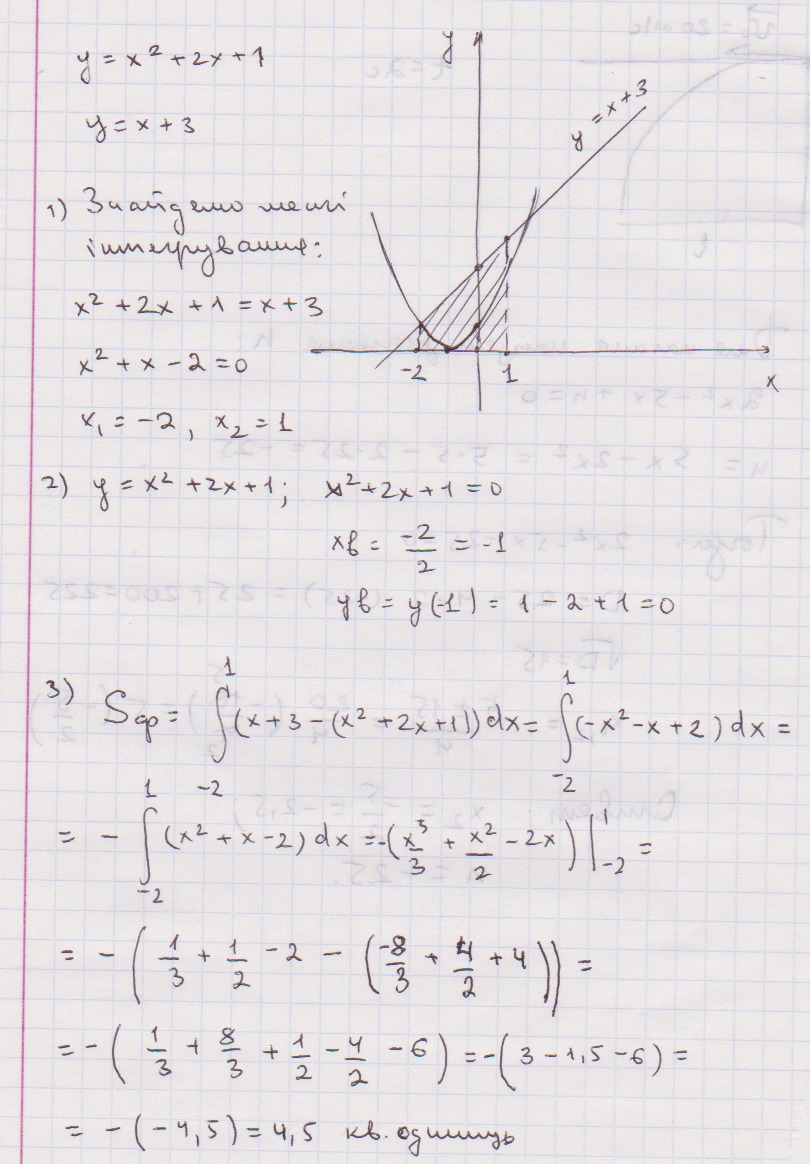 y = x² + 2x + 1
y = x + 3
y
y = x + 3
-2
1
x
1) Знайдемо межі
інтегрування:
x² + 2x + 1 = x + 3
x² + x - 2 = 0
x₁ = -2, x₂ = 1
2) y = x² + 2x + 1; x² + 2x + 1 = 0
xв = -2/2 = -1
yв = y(-1) = 1 - 2 + 1 = 0
3) Sф = ∫₋₂¹ (x + 3 - (x² + 2x + 1)) dx = ∫₋₂¹ (-x² - x + 2) dx =
= - ∫₋₂¹ (x² + x - 2) dx = -(x³/3 + x²/2 - 2x) |₋₂¹ =
= - (1/3 + 1/2 - 2 - (-8/3 + 4/2 + 4)) =
= - (1/3 + 8/3 + 1/2 - 4/2 - 6) = -(3 - 1,5 - 6) =
= - (-4,5) = 4,5 кв. одиниць